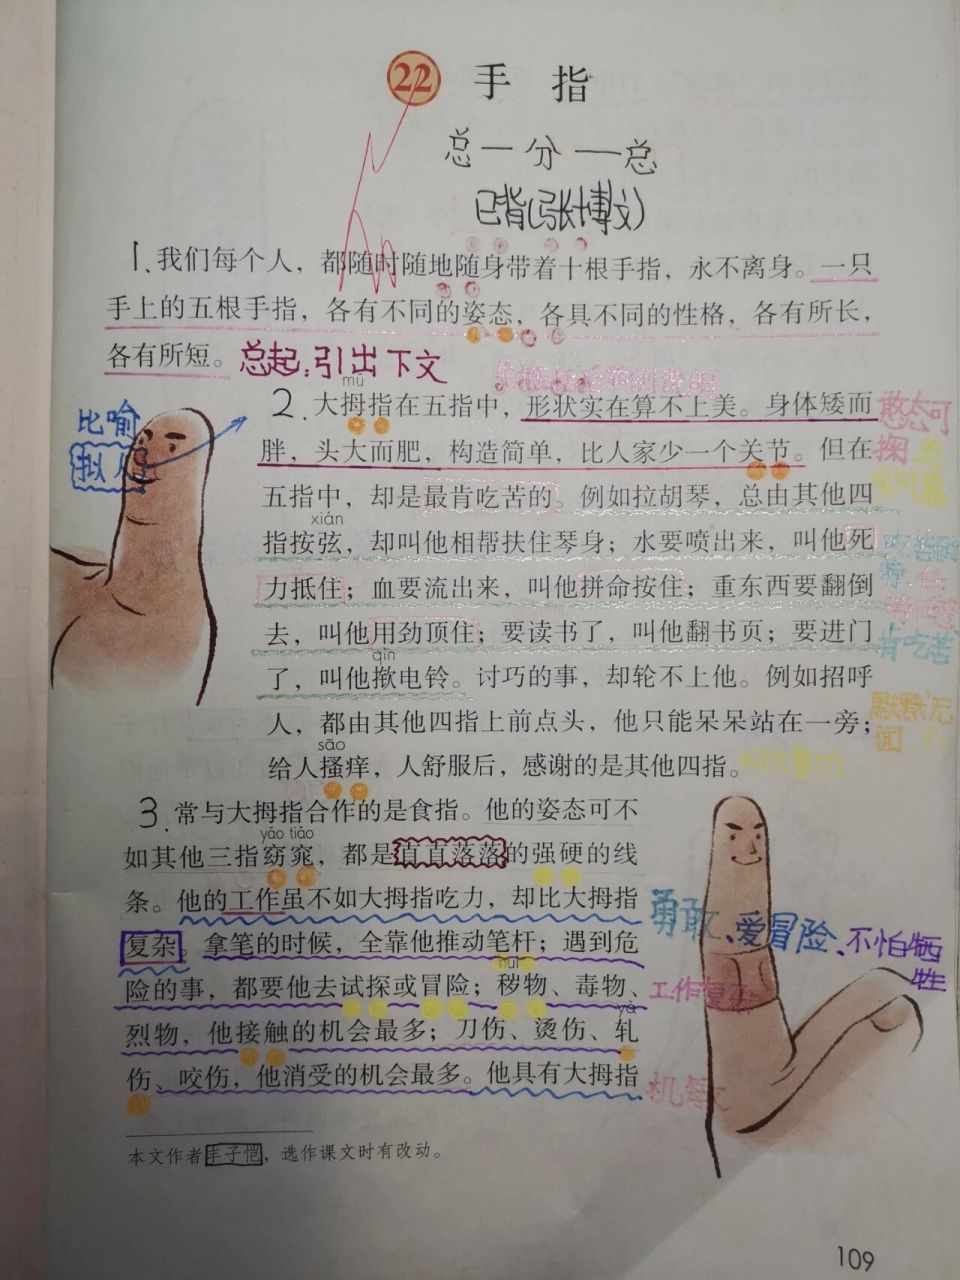 22 手指
总一分一总
已背(张博文)
1.我们每个人，都随时随地随身带着十根手指，永不离身。一只
手上的五根手指，各有不同的姿态，各具不同的性格，各有所长，
各有所短。总起:引出下文
mǔ
2.大拇指在五指中，形状实在算不上美。身体矮而
胖，头大而肥，构造简单，比人家少一个关节。但在
五指中，却是最肯吃苦的。例如拉胡琴，总由其他四
xián
指按弦，却叫他相帮扶住琴身；水要喷出来，叫他死
力抵住；血要流出来，叫他拼命按住；重东西要翻倒
去，叫他用劲顶住；要读书了，叫他翻书页；要进门
qìn
了，叫他揿电铃。讨巧的事，却轮不上他。例如招呼
人，都由其他四指上前点头，他只能呆呆站在一旁；
sāo
给人搔痒，人舒服后，感谢的是其他四指。
比喻
拟人
憨态可
掬
肯吃苦
默默无
3.常与大拇指合作的是食指。他的姿态可不
yǎo tiǎo
如其他三指窈窕，都是直直落落的强硬的线
条。他的工作虽不如大拇指吃力，却比大拇指
复杂。拿笔的时候，全靠他推动笔杆；遇到危
huì
险的事，都要他去试探或冒险；秽物、毒物、
yà
烈物，他接触的机会最多；刀伤、烫伤、轧
伤、咬伤，他消受的机会最多。他具有大拇指
勇敢、爱冒险、不怕牺
牲
工作复杂
机敏
本文作者丰子恺，选作课文时有改动。
109